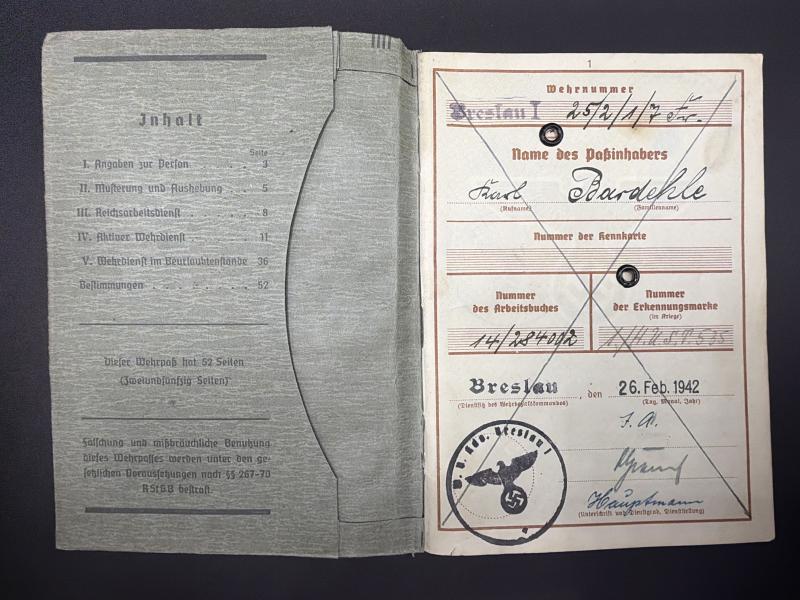 Inhalt
Seite
I. Angaben zur Person . . . 3
II. Musterung und Aushebung . . . 5
III. Reichsarbeitsdienst . . . . . . 8
IV. Aktiver Wehrdienst . . . . . 11
V. Wehrdienst im Beurlaubtenstande 36
Bestimmungen . . . . . . . 52
Dieser Wehrpaß hat 52 Seiten
(Zweiundfünfzig Seiten)
Fälschung und mißbräuchliche Benutzung
dieses Wehrpasses werden unter den ge-
setzlichen Voraussetzungen nach §§ 267-70
RStGB bestraft.
1
Wehrnummer
Breslau I 25/2/1/7
Name des Paßinhabers
Karl Bardehle
(Rufname) (Familienname)
Nummer der Kennkarte
Nummer
des Arbeitsbuches
14/284092
Nummer
der Erkennungsmarke
(im Kriege)
Breslau, den 26. Feb. 1942
(Dienstsitz des Wehrbezirkskommandos) (Tag, Monat, Jahr)
J. A.
Hauptmann
(Unterschrift und Dienstgrad, Dienststellung)
Breslau I